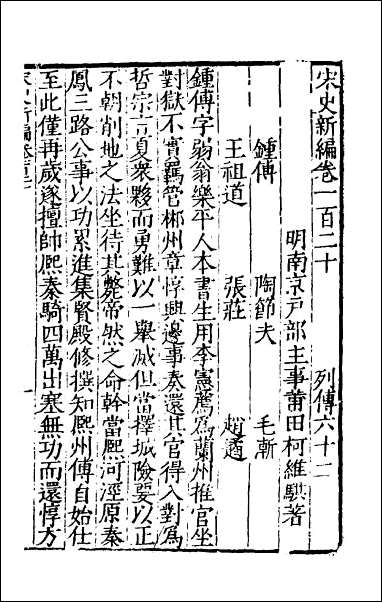 宋史新編卷一百二十 列傳六十二
明南京戶部主事莆田柯維騏著
鍾傳 陶節夫 毛漸
王祖道 張莊 趙遹
鍾傳字弱翁樂平人本書生用李憲薦爲蘭州推官坐
對獄不實羈管郴州章惇興邊事奏還其官得入對爲
哲宗言夏衆夥而勇難以一舉滅但當擇城險要以正
不朝削地之法坐待其斃帝然之命幹當熙河涇原秦
鳳三路公事以功累進集賢殿修撰知熙州傳自始仕
至此僅再歲遂擅帥熙秦騎四萬出塞無功而還惇方
一